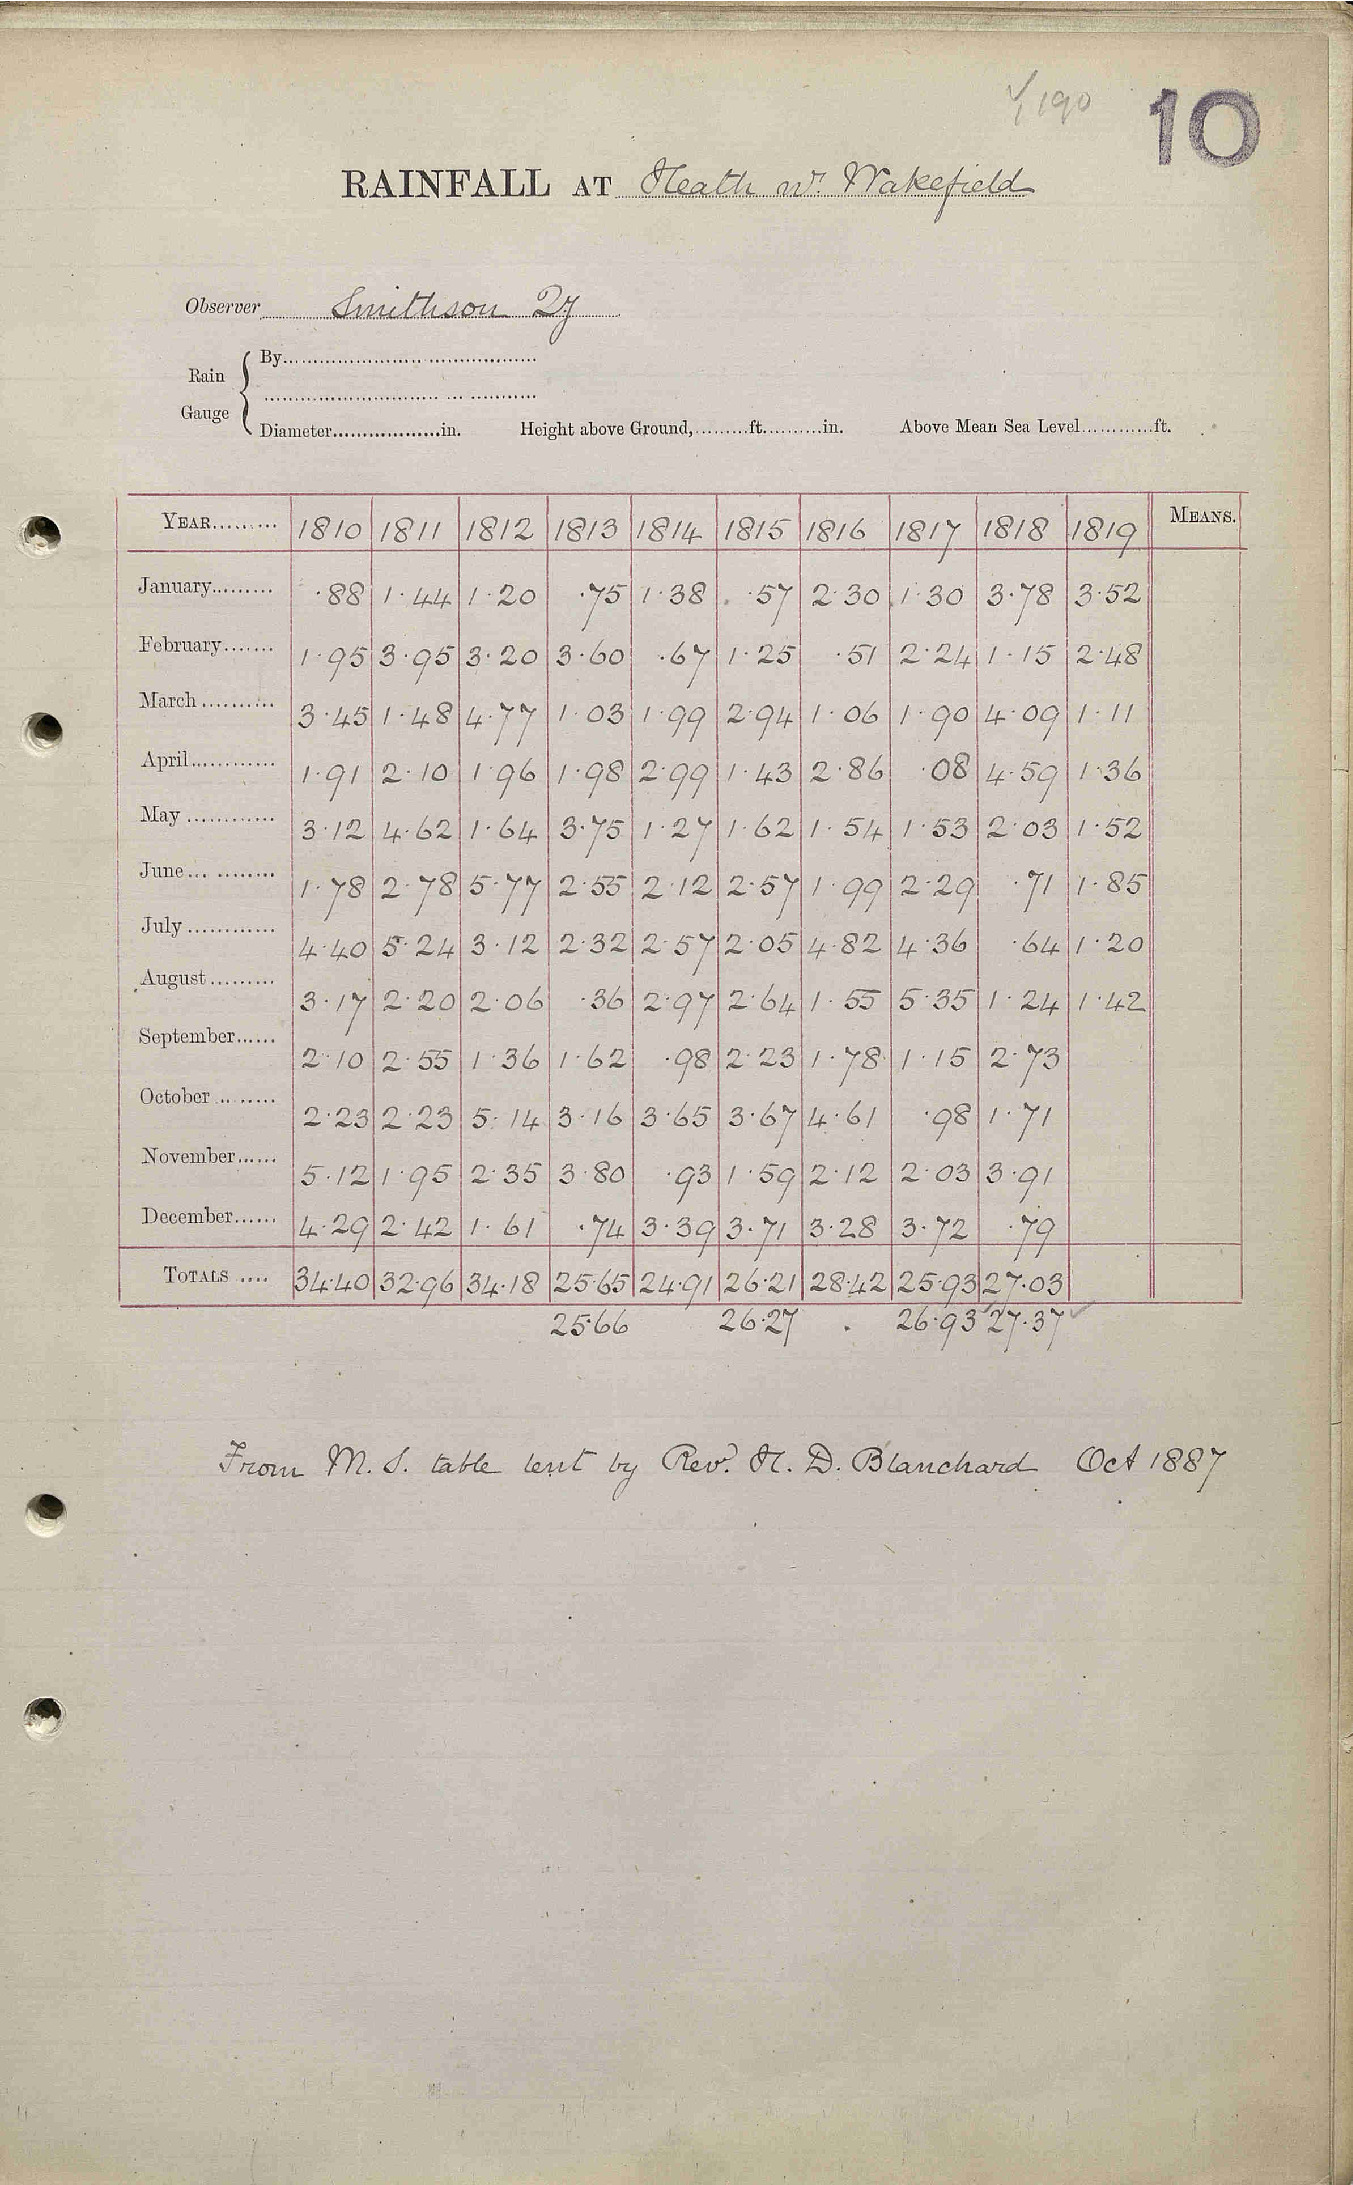 √/190
10
RAINFALL AT Heath nr. Wakefield
Observer Smithson Qy
Rain Gauge { By
Diameter in. Height above Ground, ft. in. Above Mean Sea Level ft.
YEAR 1810 1811 1812 1813 1814 1815 1816 1817 1818 1819 MEANS.
January ·88 1·44 1·20 ·75 1·38 ·57 2·30 1·30 3·78 3·52
February 1·95 3·95 3·20 3·60 ·67 1·25 ·51 2·24 1·15 2·48
March 3·45 1·48 4·77 1·03 1·99 2·94 1·06 1·90 4·09 1·11
April 1·91 2·10 1·96 1·98 2·99 1·43 2·86 ·08 4·59 1·36
May 3·12 4·62 1·64 3·75 1·27 1·62 1·54 1·53 2·03 1·52
June 1·78 2·78 5·77 2·55 2·12 2·57 1·99 2·29 ·71 1·85
July 4·40 5·24 3·12 2·32 2·57 2·05 4·82 4·36 ·64 1·20
August 3·17 2·20 2·06 ·36 2·97 2·64 1·55 5·35 1·24 1·42
September 2·10 2·55 1·36 1·62 ·98 2·23 1·78 1·15 2·73
October 2·23 2·23 5·14 3·16 3·65 3·67 4·61 ·98 1·71
November 5·12 1·95 2·35 3·80 ·93 1·59 2·12 2·03 3·91
December 4·29 2·42 1·61 ·74 3·39 3·71 3·28 3·72 ·79
TOTALS 34·40 32·96 34·18 25·65 24·91 26·21 28·42 25·93 27·03
25·66 26·27 26·93 27·37
From M.S. table lent by Rev. H. D. Blanchard Oct 1887